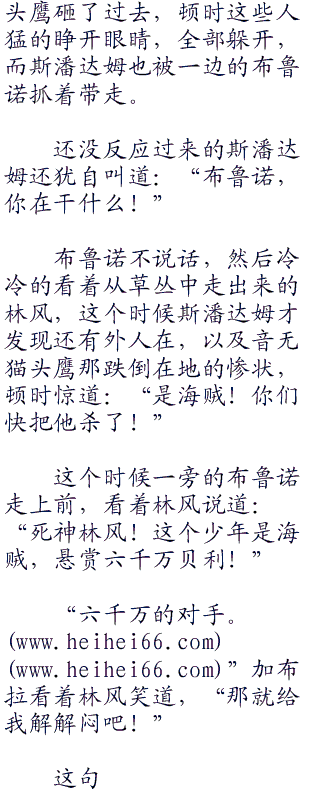 头鹰砸了过去，顿时这些人
猛的睁开眼睛，全部躲开，
而斯潘达姆也被一边的布鲁
诺抓着带走。
还没反应过来的斯潘达
姆还犹自叫道：“布鲁诺，
你在干什么！”
布鲁诺不说话，然后冷
冷的看着从草丛中走出来的
林风，这个时候斯潘达姆才
发现还有外人在，以及音无
猫头鹰那跌倒在地的惨状，
顿时惊道：“是海贼！你们
快把他杀了！”
这个时候一旁的布鲁诺
走上前，看着林风说道：
“死神林风！这个少年是海
贼，悬赏六千万贝利！”
“六千万的对手。
(www.heihei66.com)
(www.heihei66.com)”加布
拉看着林风笑道，“那就给
我解解闷吧！”
这句